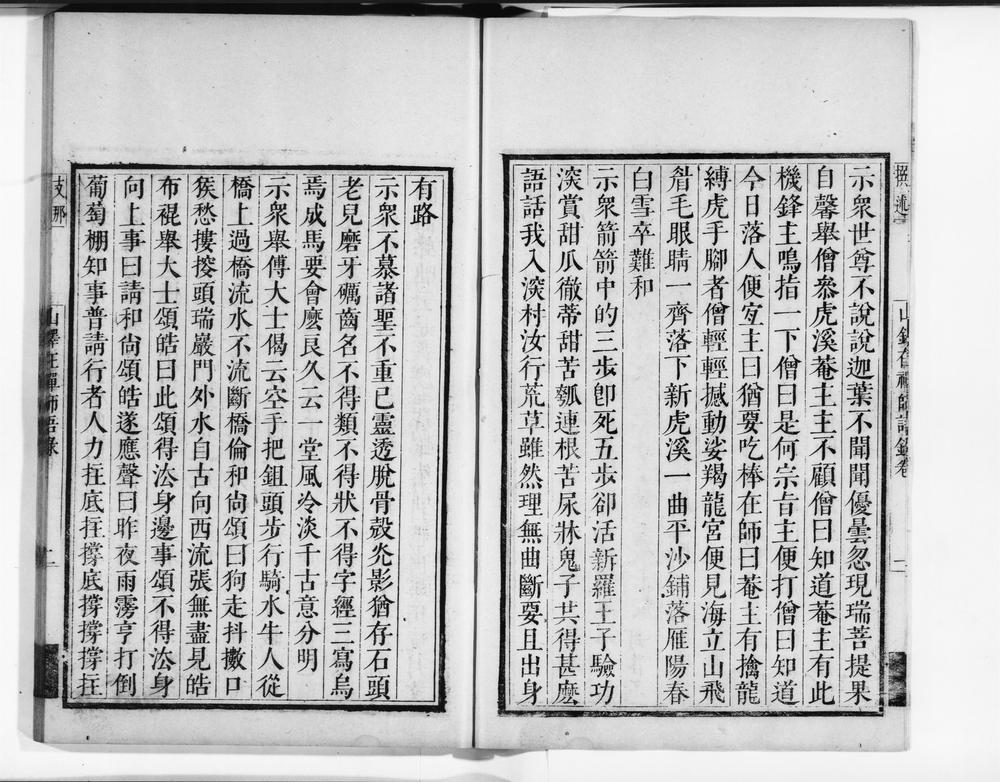 示衆世尊不說說迦葉不聞聞優曇忽現瑞菩提果
自馨舉僧叅虎溪菴主主不顧僧曰知道菴主有此
機鋒主鳴指一下僧曰是何宗旨主便打僧曰知道
今日落人便宐主曰猶要吃棒在師曰菴主有擒龍
縛虎手腳者僧輕輕撼動娑羯龍宮便見海立山飛
眉毛眼睛一齊落下新虎溪一曲平沙鋪落雁陽春
白雪卒難和
示衆箭箭中的三步卽死五步卻活新羅王子驗功
深賞甜瓜徹蒂甜苦瓠連根苦尿牀鬼子共得甚麼
語話我入深村汝行荒草雖然理無曲斷要且出身
有路
示衆不慕諸聖不重已靈透脫骨殼灮影猶存石頭
老兒磨牙礪齒名不得類不得狀不得字經三寫烏
焉成馬要會麼良久云一堂風冷淡千古意分明
示衆舉傅大士偈云空手把鉏頭步行騎水牛人從
橋上過橋流水不流斷橋倫和尙頌曰狗走抖擻口
猴愁摟搜頭瑞巖門外水自古向西流張無盡見皓
布裩舉大士頌皓曰此頌得法身邊事頌不得法身
向上事曰請和尙頌皓遂應聲曰昨夜雨霶亨打倒
葡萄棚知事普請行者人力拄底拄撐底撐撐撐拄
支那
撰述
二